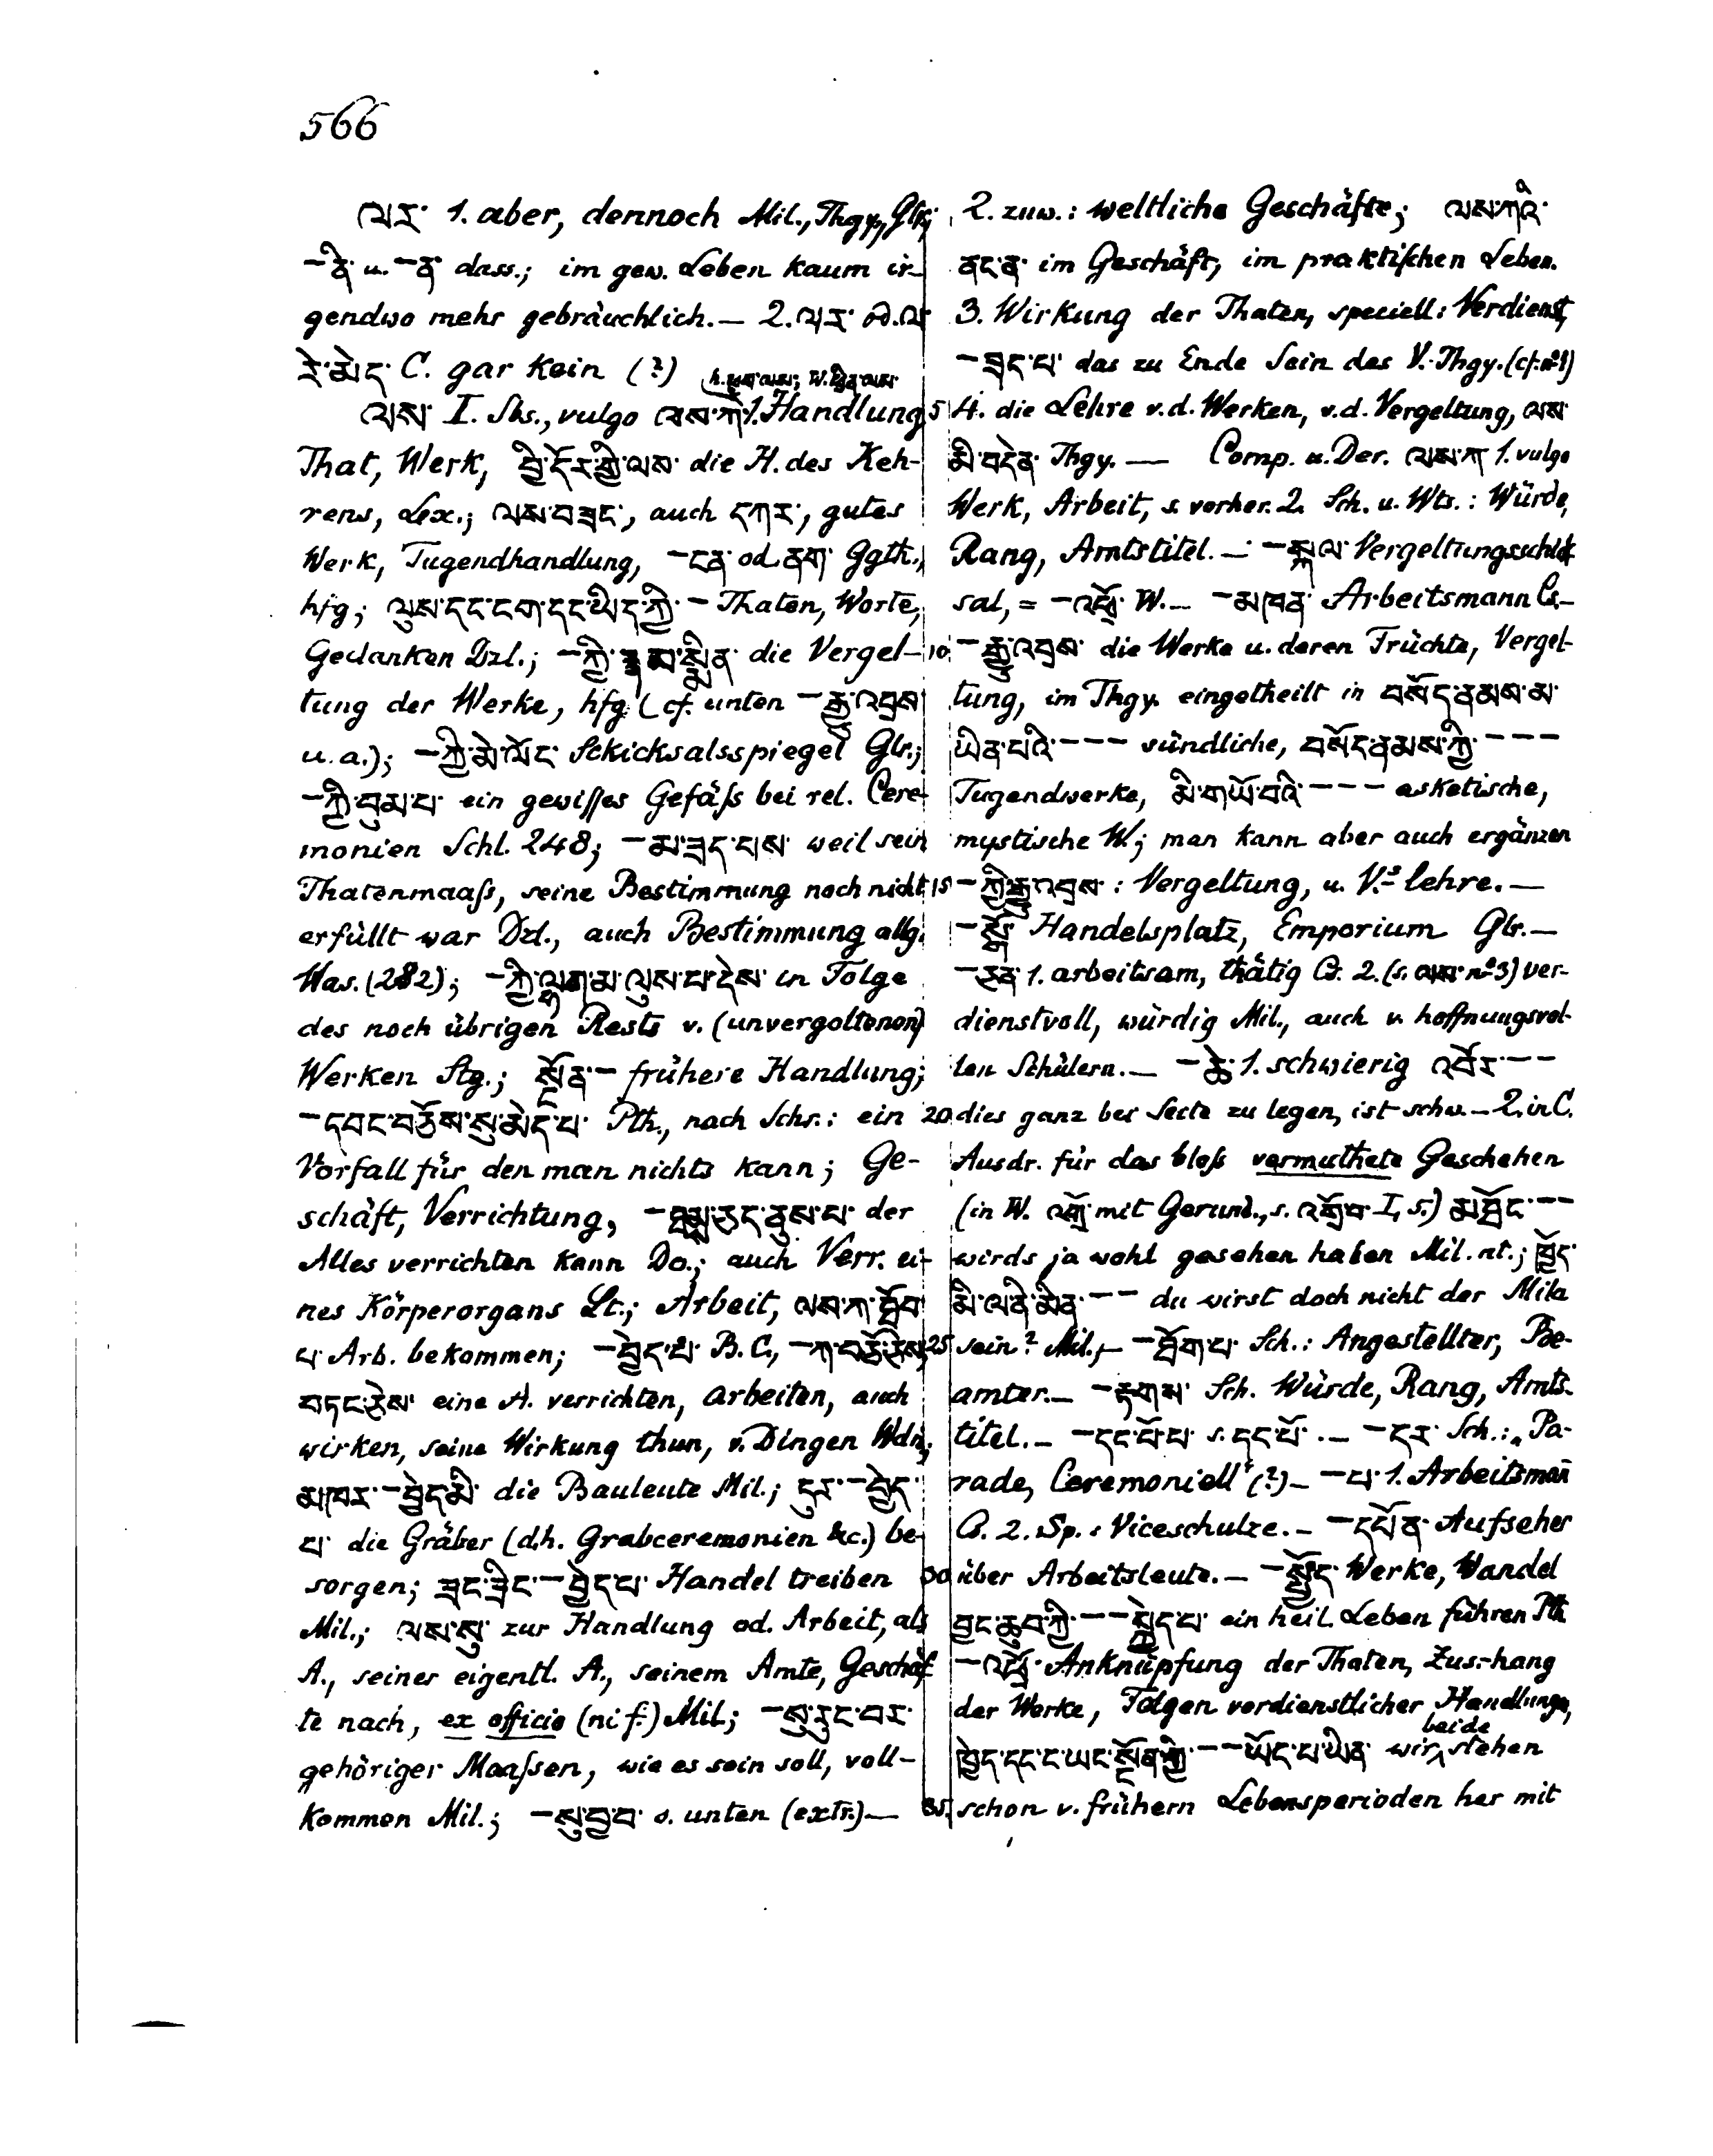 566
ལར་ 1. aber, dennoch Mil., Thgy., Glr.;
–ནི་ u. –ན་ dass.; im gew. Leben kaum ir-
gendwo mehr gebräuchlich. — 2. ལར་ od. ལ་
རེ་མེད་ C. gar kein (?)
ལས་ I. Sbs., vulgo ལས་ཀ་ 1. Handlung
h. ཕྲིན་ལས་; W.
That, Werk, བྱི་དོར་གྱི་ལས་ die H. des Keh-
rens, Lex.; ལས་བཟང་, auch དཀར་, gutes
Werk, Tugendhandlung, –ངན་ od. ནག་ Ggth.,
hfg; ལུས་དང་ངག་དང་ཡིད་ཀྱི་ – Thaten, Worte,
Gedanken Dzl.; –ཀྱི་རྣམ་སྨིན་ die Vergel-
tung der Werke, hfg (cf. unten –རྒྱུ་འབྲས
u. a.); –ཀྱི་མེ་ལོང་ Schicksalsspiegel Glr.;
–ཀྱི་བུམ་པ་ ein gewisses Gefäß bei rel. Cere-
monien Schl. 248; –མ་ཟད་པས་ weil sein
Thatenmaaß, seine Bestimmung noch nicht
erfüllt war Dzl., auch Bestimmung allg.
Was. (282); –ཀྱི་ལྷག་མ་ལུས་པ་དེས་ in Folge
des noch übrigen Rests v. (unvergoltenen)
Werken Stg.; སྔོན་ – frühere Handlung;
–དབང་བཅོས་སུ་མེད་པ་ Pth., nach Schr.: ein
Vorfall für den man nichts kann; Ge-
schäft, Verrichtung, –ཐམས་ཅད་ནུས་པ་ der
Alles verrichten kann Do.; auch Verr. ei-
nes Körperorgans Lt.; Arbeit, ལས་ཀ་ཐོབ་
པ་ Arb. bekommen; –བྱེད་པ་ B. C., –ཀ་བཅོ་ཅེས,
བཏང་ཅེས་ eine A. verrichten, arbeiten, auch
wirken, seine Wirkung thun, v. Dingen Wdn.;
མཁར་–བྱེད་མི་ die Bauleute Mil.; དུར་–བྱེད་
པ་ die Gräber (d.h. Grabceremonien &c.) be-
sorgen; ཟང་ཟིང་–བྱེད་པ་ Handel treiben
Mil.; ལས་སུ་ zur Handlung od. Arbeit, als
A., seiner eigentl. A., seinem Amte, Geschäf-
te nach, ex officio (ni f.) Mil.; –སུ་རུང་བར་
gehöriger Maaßen, wie es sein soll, voll-
kommen Mil.; –སུ་བྱ་བ་ s. unten (extr.) —
2. zuw.: weltliche Geschäfte; ལས་ཀའི་
ནང་ན་ im Geschäft, im praktischen Leben.
3. Wirkung der Thaten, speciell: Verdienst,
–ཟད་པ་ das zu Ende Sein des V. Thgy. (cf. nº 1)
5 4. die Lehre v. d. Werken, v. d. Vergeltung, ལས་
མི་བདེན་ Thgy. — Comp. u. Der. ལས་ཀ 1. vulgo
Werk, Arbeit, s. vorher. 2. Sch. u. Wts.: Würde,
Rang, Amtstitel. — –སྐལ་ Vergeltungsschick-
sal, = –འཕྲོ་ W. — –མཁན་ Arbeitsmann Cs. —
10 –རྒྱུ་འབྲས་ die Werke u. deren Früchte, Vergel-
tung, im Thgy. eingetheilt in བསོད་ནམས་མ་
ཡིན་པའི་ – – – sündliche, བསོད་ནམས་ཀྱི་ – – –
Tugendwerke, མི་གཡོ་བའི་ – – – asketische,
mystische W.; man kann aber auch ergänzen
15 –ཀྱི་རྒྱུ་འབྲས་: Vergeltung, u. V.slehre. —
–སྒོ་ Handelsplatz, Emporium Glr. —
–ཅན་ 1. arbeitsam, thätig Cs. 2. (s. ལས་ nº 3) ver-
dienstvoll, würdig Mil., auch v. hoffnungsvol-
len Schülern. — –ཆེ་ 1. schwierig འབོར་ – –
20 dies ganz bei Seite zu legen, ist schw. — 2. in C.
Ausdr. für das bloß vermuthete Geschehen
(in W. འགྲོ་ mit Gerund., s. འགྲོ་བ་ I, 5.) མཐོང་ – –
wirds ja wohl gesehen haben Mil. nt.; ཁྱོད་
མི་ལ་ནི་མིན་ – – du wirst doch nicht der Mila
25 sein? Mil. — –ཐོག་པ་ Sch.: Angestellter, Be-
amter. — –རྟགས་ Sch. Würde, Rang, Amts-
titel. — –དང་པོ་པ་ s. དང་པོ་. — –དར་ Sch.: „Pa-
rade, Ceremoniell“ (?) — –པ་ 1. Arbeitsman̄
Cs. 2. Sp.: Viceschulze. — –དཔོན་ Aufseher
30 über Arbeitsleute. — –སྤྱོད་ Werke, Wandel
བྱང་ཆུབ་ཀྱི་ – –སྤྱེད་པ་ ein heil. Leben führen Pth.
–འཕྲོ་ Anknüpfung der Thaten, Zus.-hang
der Werke, Folgen verdienstlicher Handlungen,
ཁྱེད་དང་ང་ཡང་སྔོན་གྱི་ – –ཡོད་པ་ཡིན་ wir beide stehen
35. schon v. frühern Lebensperioden her mit